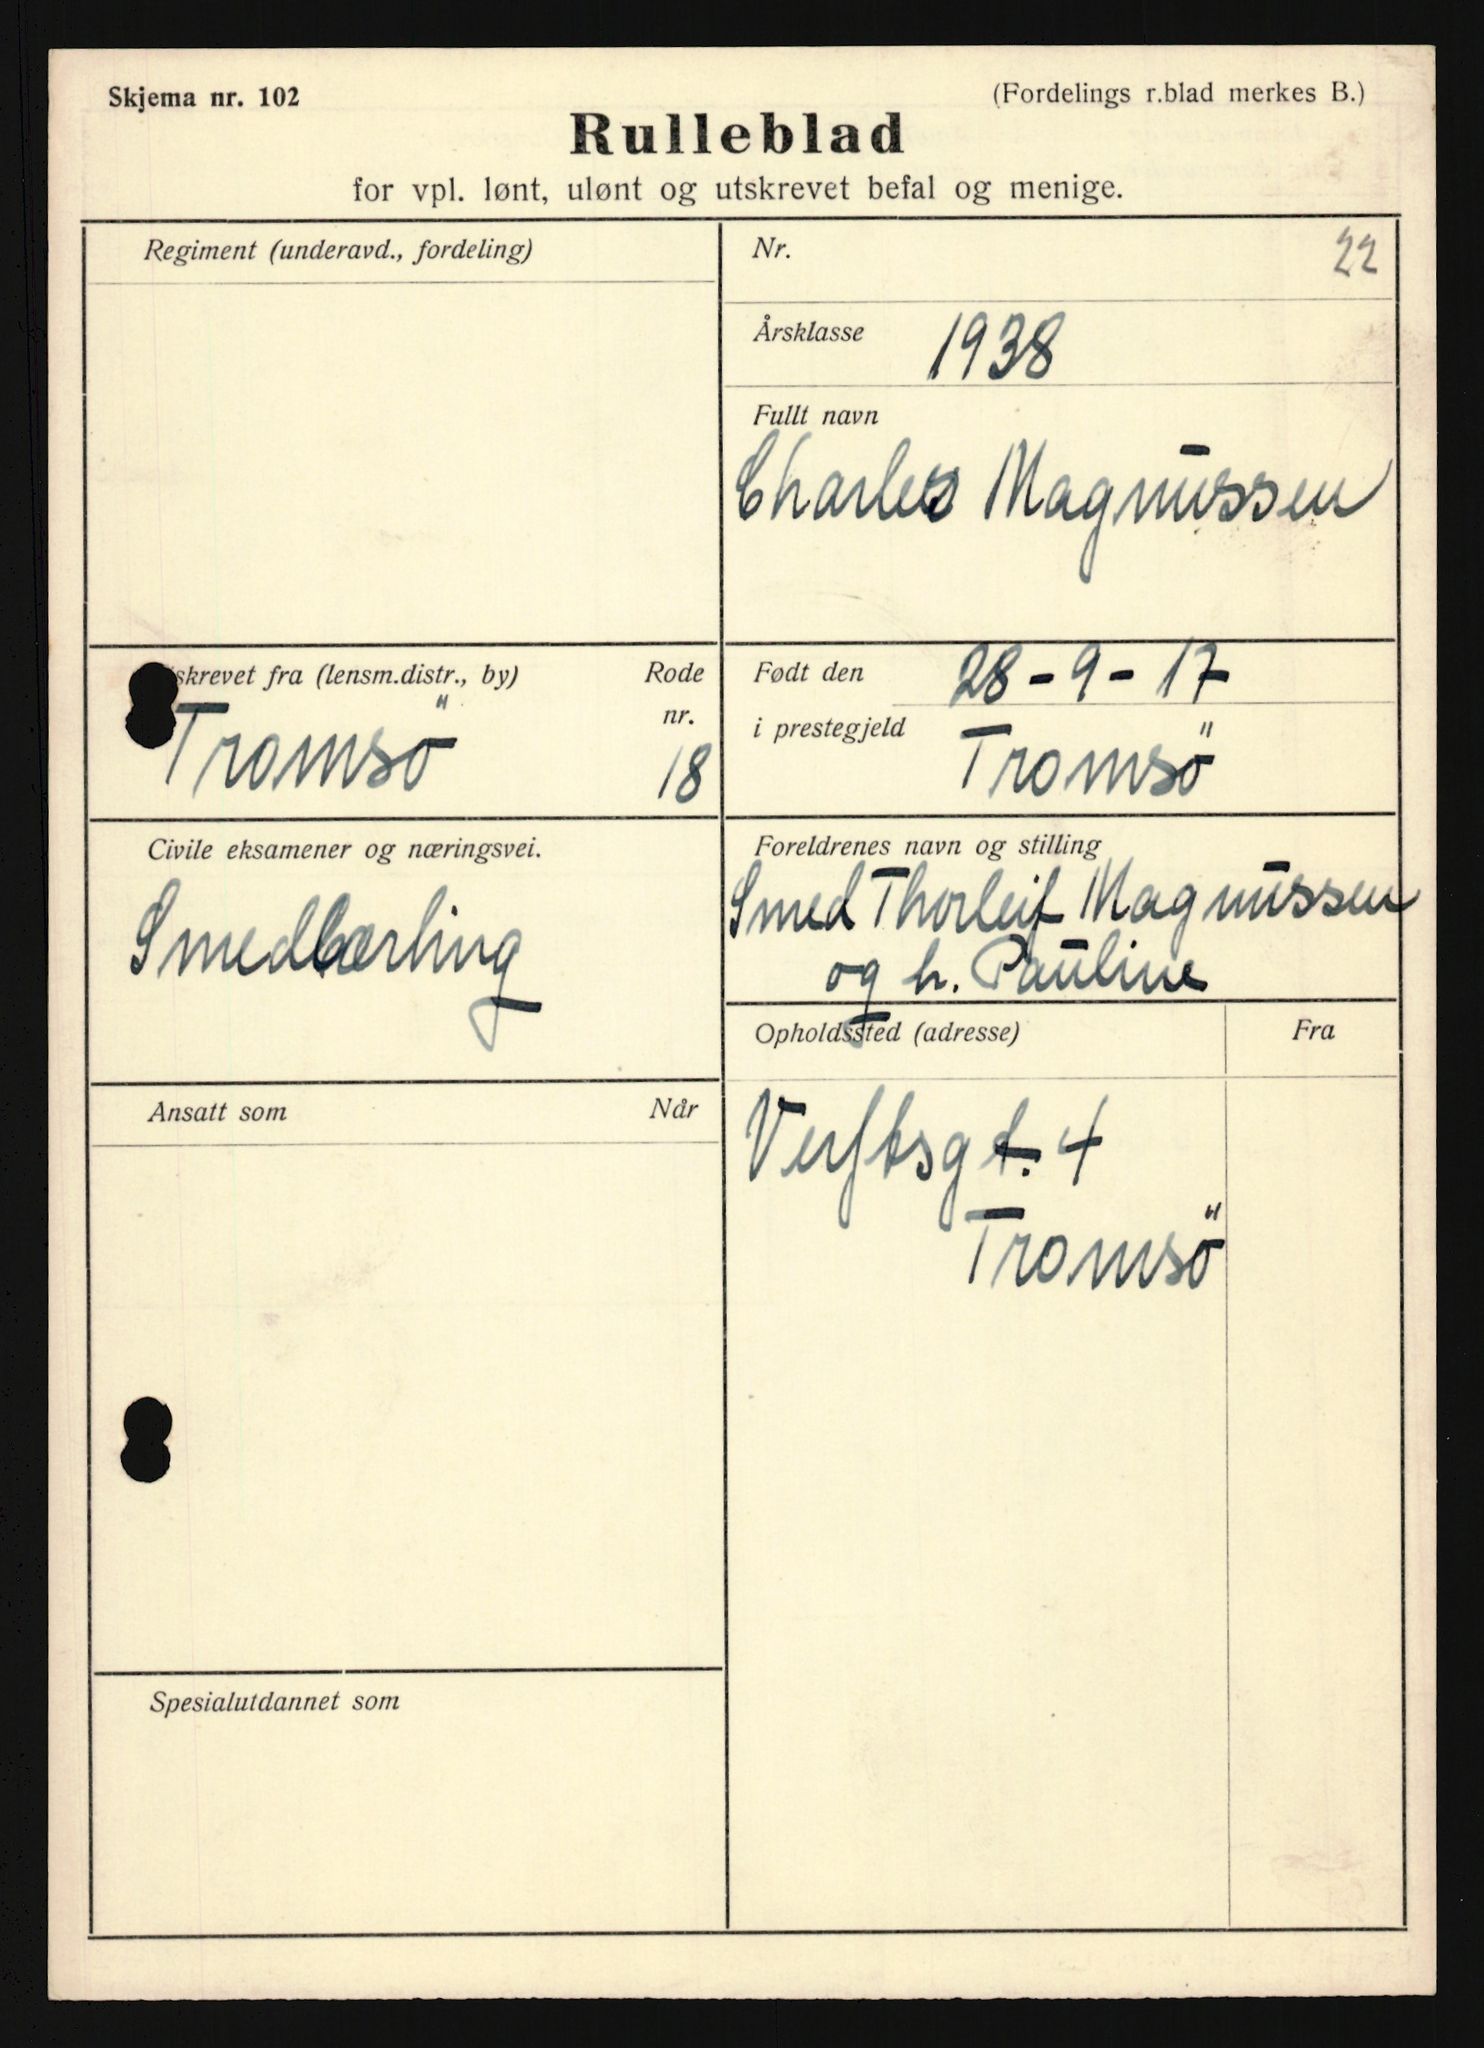 Skjema nr. 102
(Fordelings r.blad merkes B.)
Rulleblad
for vpl. lønt, ulønt og utskrevet befal og menige.
Regiment (underavd., fordeling)
Nr.
22
Årsklasse 1938
Fullt navn
Charles Magnussen
skrevet fra (lensm.distr., by)
Rode
nr.
Tromsö
18
Født den 28-9-17
i prestegjeld Tromsö
Civile eksamener og næringsvei.
Smedlærling
Foreldrenes navn og stilling
Smed Thorleif Magnussen
og h. Pauline
Opholdssted (adresse)
Fra
Verftsgt. 4
Tromsö
Ansatt som
Når
Spesialutdannet som